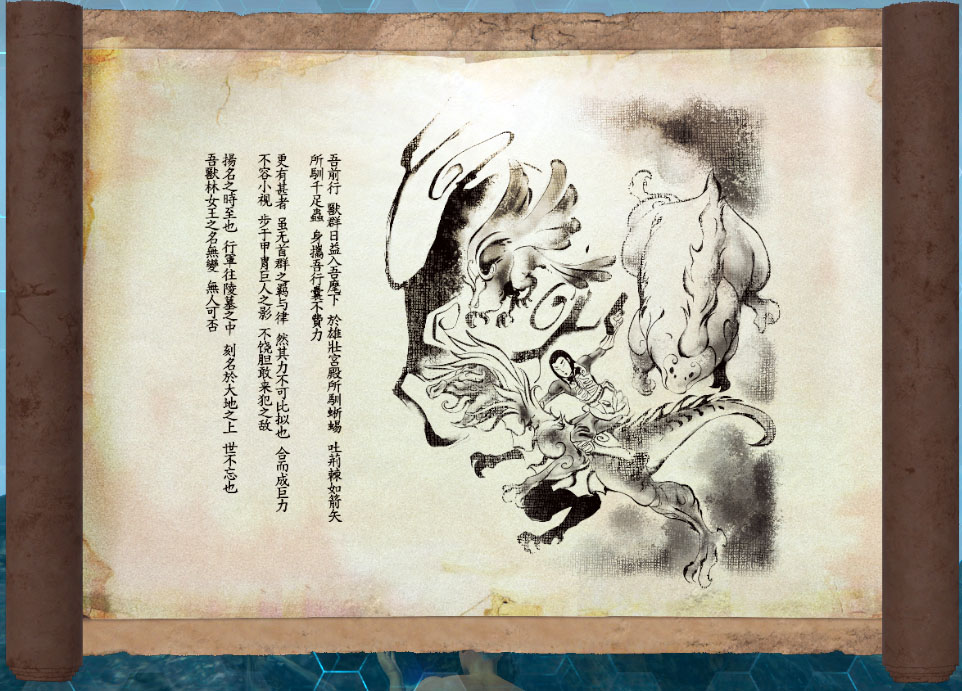 吾前行 獸群日益入吾麾下 於雄壯宮殿所馴蜥蜴 吐荊棘如箭矢
所馴千足蟲 身攜吾行囊不費力
更有甚者 虽无首群之羁与律 然其力不可比拟也 合而成巨力
不容小视 步于甲胄巨人之影 不饶胆敢来犯之敌
揚名之時至也 行軍往陵墓之中 刻名於大地之上 世不忘也
吾獸林女王之名無變 無人可否